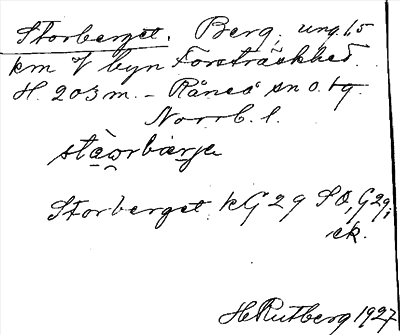 Storberget. Berg, ung. 1,5
km V byn Forsträskhed.
H. 203 m. – Råneå sn o. tg.
Norrb. l.
Storberget kG 29 SO, G 29;
ek.
H Rutberg 1927